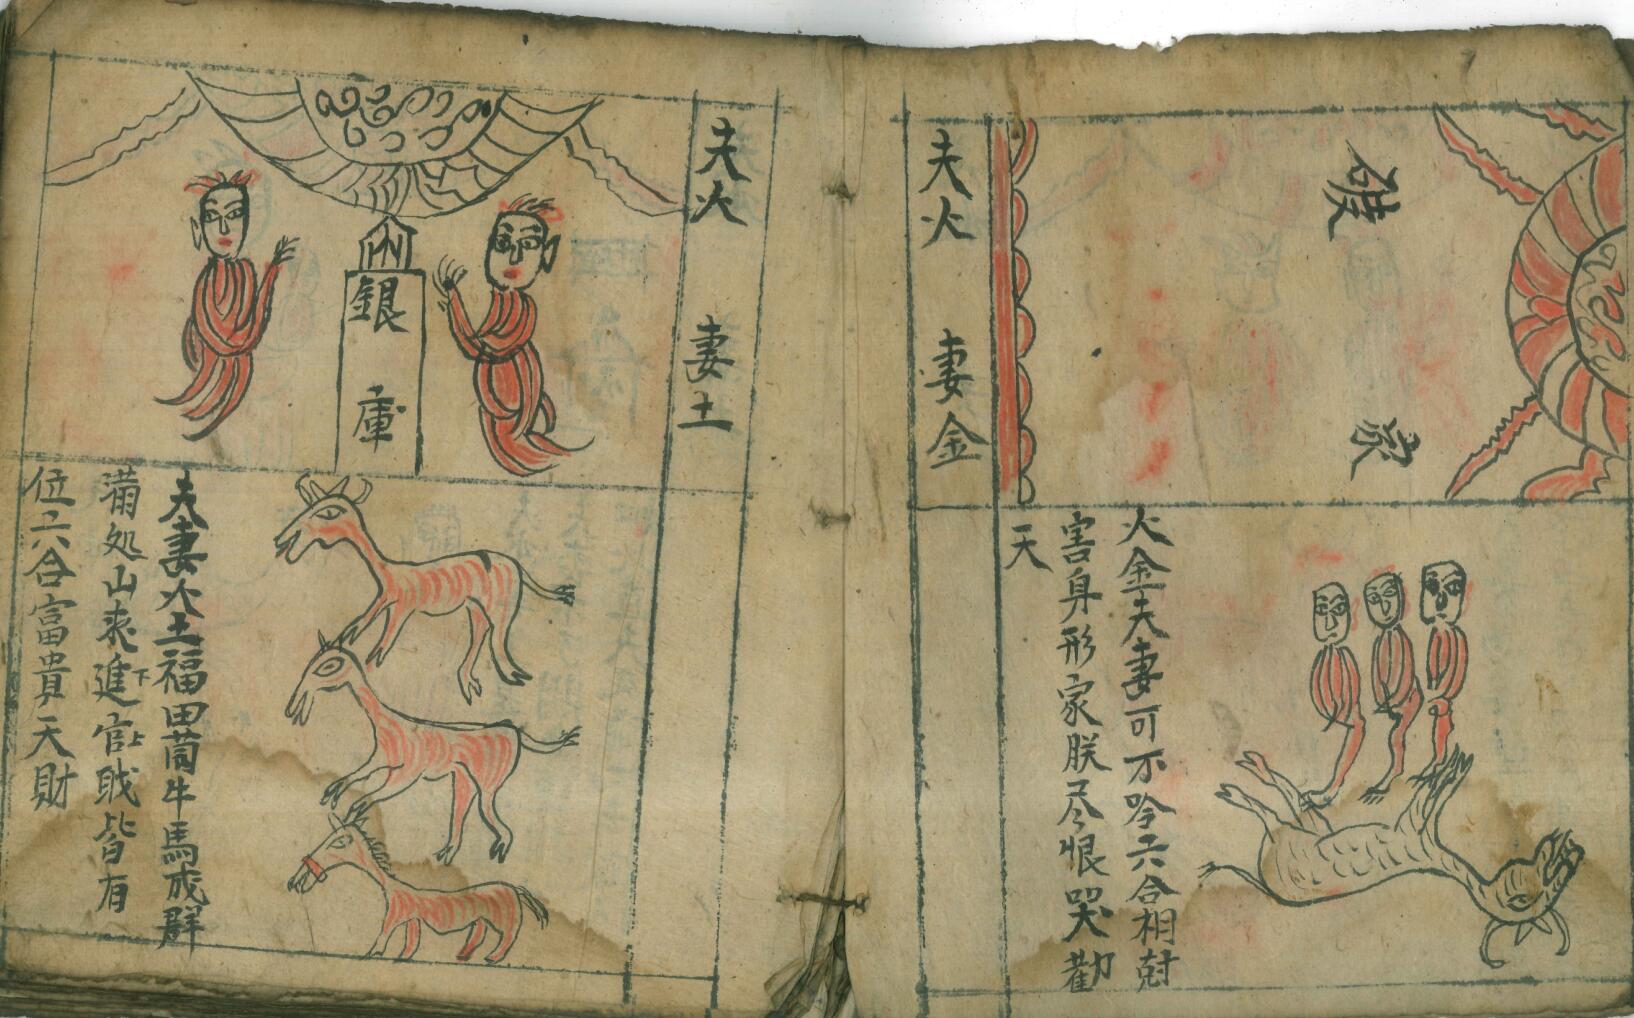 夫火 妻金
破家
火金夫妻可不吟六合相尅
害身形家朕尽恨哭勸
天
夫火 妻土
銀庫
夫妻火土福田茼牛馬成群
滿処山来進下官上戝皆有
位六合富貴天財